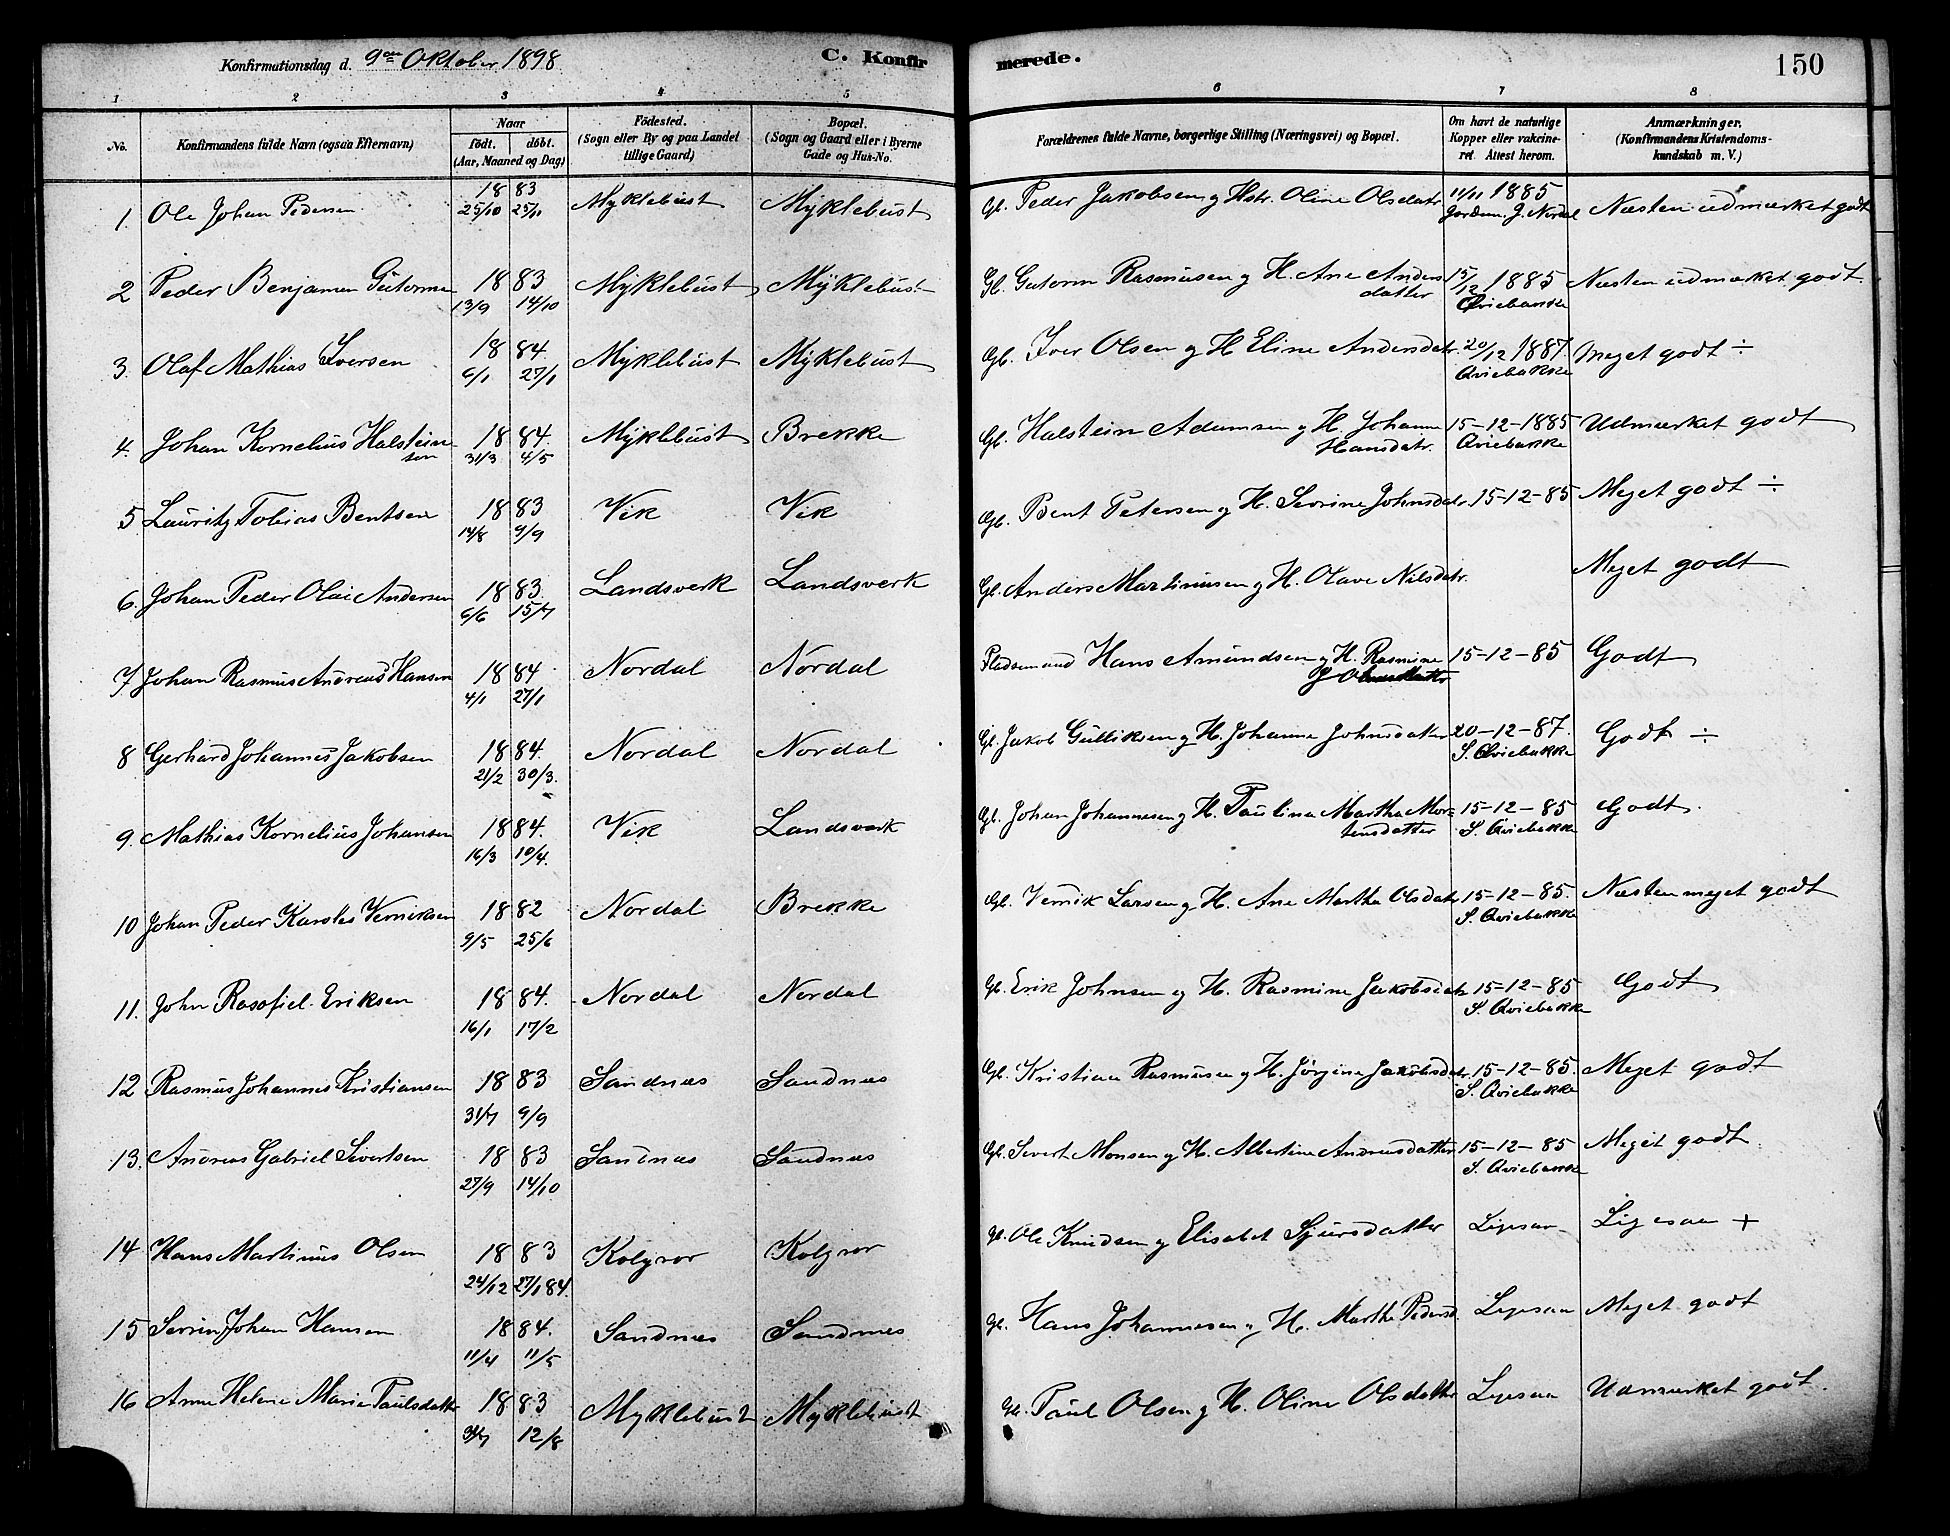 Konfirmationsdag d. 9de Oktober 1898 C. Konfirmerede. 150
1 2 3 4 5 6 7 8
No. Konfirmandens fulde Navn (ogsaa Efternavn) Naar födt. döbt. (Aar, Maaned og Dag) Födested. (Sogn eller By og paa Landet tillige Gaard) Bopæl. (Sogn og Gaard eller i Byerne Gade og Hus-No. Forældrenes fulde Navne, borgerlige Stilling (Næringsvei) og Bopæl. Om havt de naturlige Kopper eller vakcineret. Attest herom. Anmærkninger. (Konfirmandens Kristendomskundskab m. V.)
1. Ole Johan Pedersen 1883 25/10 25/11 Myklebust Myklebust Gb. Peder Jakobsen og Hstr. Oline Olsdatr 11/11 1885 Jordm. J. Nordal Næsten udmærket godt
2 Peder Benjamin Gutormsen 1883 13/9 14/10 Myklebust Myklebust Gb. Gutorm Rasmusen og H. Ane Andersdatter 15/12 1885 Qviebakke Næsten udmærket godt.
3. Olaf Mathias Iversen 1884. 6/1 27/1 Myklebust Myklebust Gb. Iver Olsen og H Eline Andersdatr. 20/12 1887. Qviebakke Meget godt ÷
4. Johan Kornelius Halsteinsen 1884. 31/3 4/5 Myklebust Brekke Gb. Halstein Adamsen og H. Johanne Hansdatr. 15-12-1885 Qviebakke Udmærket godt
5 Lauritz Tobias Bentsen 1883 14/8 9/9 Vik Vik Gb. Bent Petersen og H. Sevrine Johnsdatr. 15-12-85 Meget godt ÷
6. Johan Peder Olai Andersen 1883. 6/6 15/7 Landsverk Landsverk Gb. Anders Martinusen og H. Olave Nilsdatr. Meget godt
7 Johan Rasmus Andreas Hansen 1884 4/1 27/1 Nordal Nordal Pladsemand Hans Amundsen og H. Rasmine 15-12-85 Godt
8 Gerhard Johannes Jakobsen 1884. 21/2 30/3. Nordal Nordal Gb. Jakob Gulliksen og H. Johanne Johnsdatter 20-12-87. S. Qviebakke Godt ÷
9. Mathias Kornelius Johansen 1884. 16/3 10/4. Vik Landsverk Gb. Johan Johannesen og H. Pauline Martha Mortensdatter 15-12-85 S. Qviebakke Godt.
10 Johan Peder Karolus Verniksen 1882 9/5 25/6 Nordal Brekke Gb. Vernik Larsen og H. Ane Martha Olsdatr 15-12-85. S. Qviebakke Næsten meget godt
11. John Rasofiel Eriksen 1884. 16/1 17/2 Nordal Nordal Gb. Erik Johnsen og H. Rasmine Jakobsdatr 15-12-85 S. Qviebakke Godt
12 Rasmus Johannes Kristiansen 1883 31/7 9/9 Sandnæs Sandnæs Gb. Kristian Rasmusen og H. Jørgine Jakobsdatr. 15-12-85. S. Qviebakke Meget godt
13. Andreas Gabriel Sivertsen 1883 27/9 14/10 Sandnæs Sandnæs Gb. Sivert Monsen og H. Albertine Andreasdatter 15-12-85 S. Qviebakke Meget godt
14 Hans Martinus Olsen 1883 24/12 27/1 84. Kolgror Kolgror Gb. Ole Knudsen og Elisabet Sjursdatter Ligesaa Ligesaa +
15 Sevrin Johan Hansen 1884. 11/4 11/5 Sandnæs Sandnæs Gb. Hans Johannesen og H. Marthe Pedersd. Ligesaa Meget godt
16 Anne Helene Marie Paulsdatter 1883 12/8 Myklebust Myklebust Gb. Paul Olsen og H. Oline Olsdatter Ligesaa Udmærket godt.